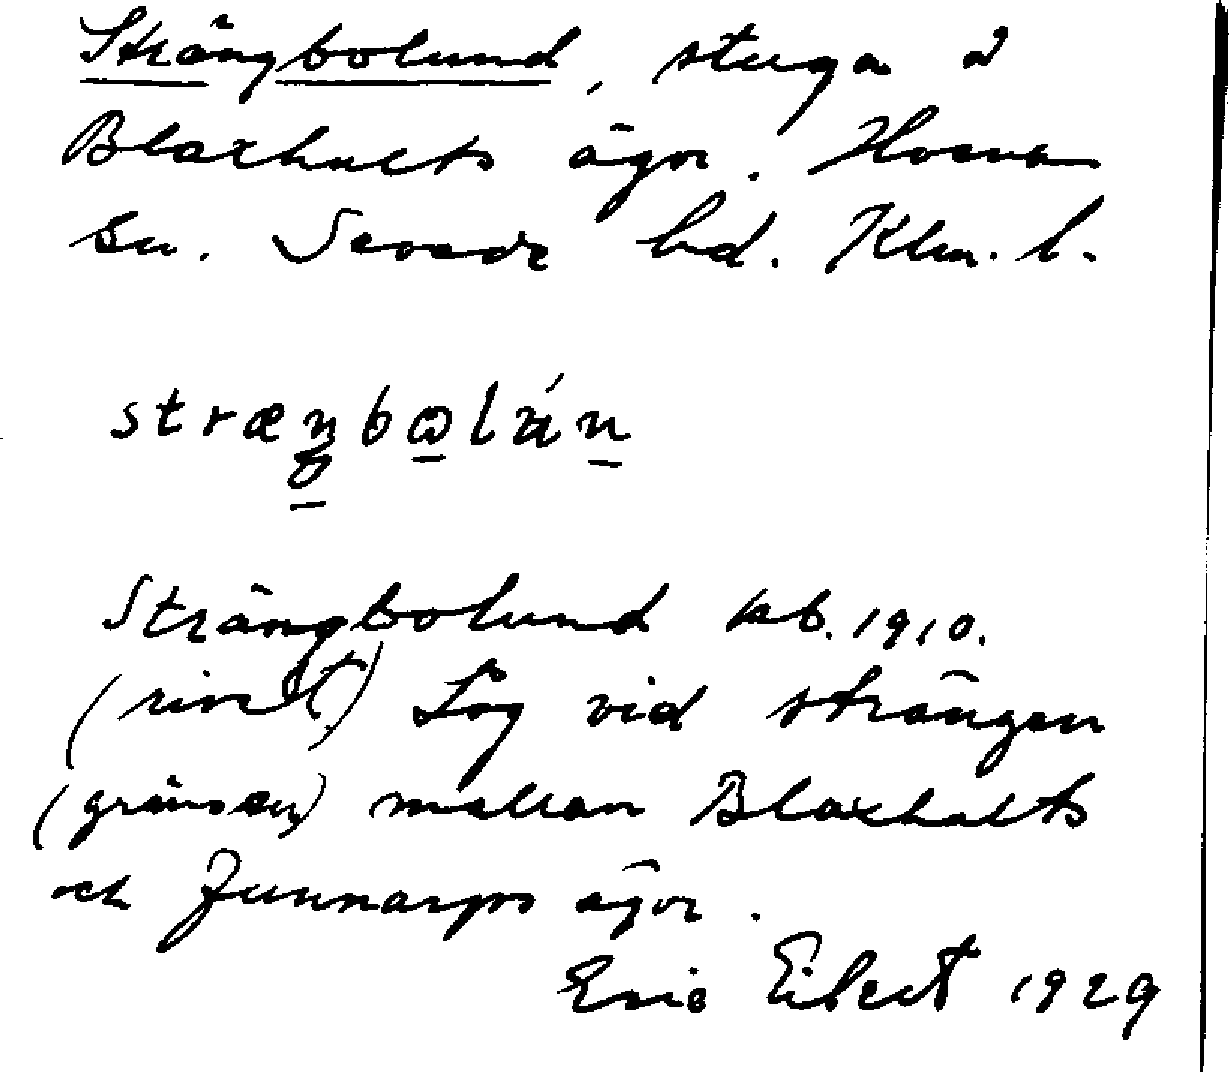 Strängbolund, stuga å
Blaxhults ägor. Horva
sn. Sevede hd. Klm. l.
Strängbolund kb. 1910.
(rivet) Låg vid strängen
(gränsen) mellan Blaxhults
och Junnarps ägor.
Eric Eibert 1929